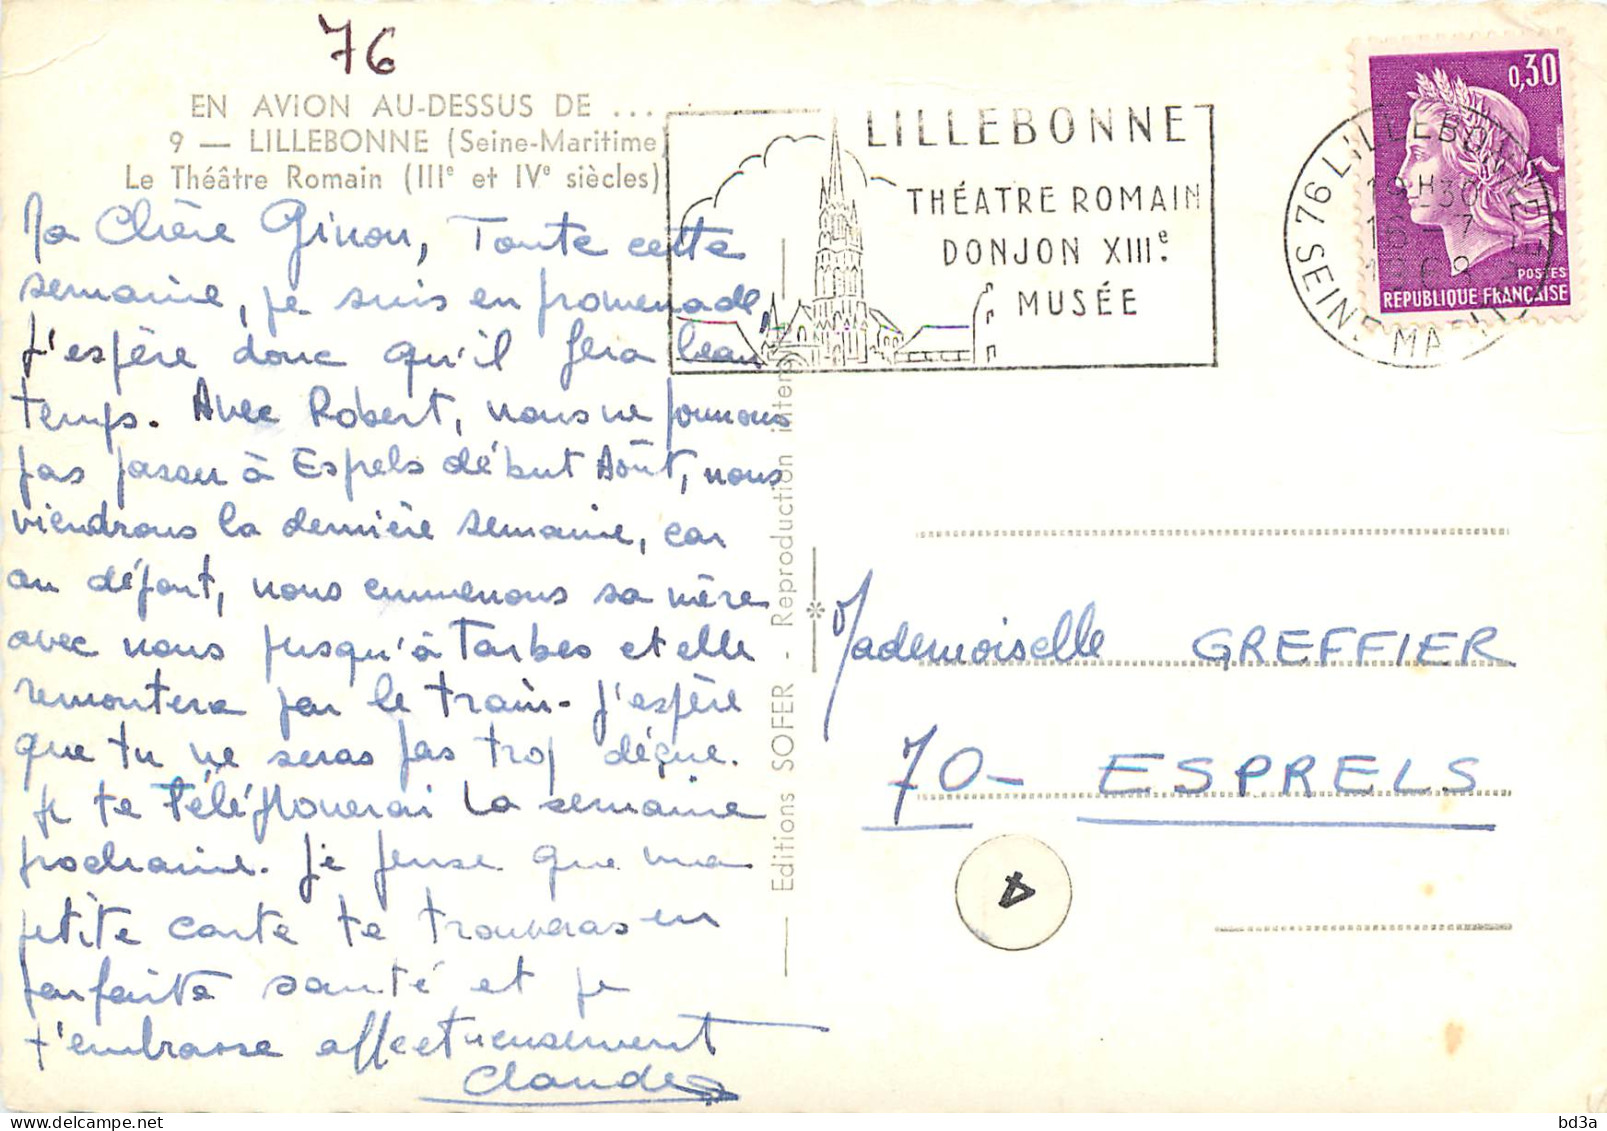 76
EN AVION AU-DESSUS DE ...
9 — LILLEBONNE (Seine-Maritime)
Le Théâtre Romain (IIIe et IVe siècles)
Ma Chère Ginou, Toute cette
semaine, je suis en promenade,
J'espère donc qu'il fera beau
temps. Avec Robert, nous ne pouvons
pas passer à Esprels début Août, nous
viendrons la dernière semaine, car
au départ, nous emmenons sa mère
avec nous jusqu'à Tarbes et elle
remontera par le train - J'espère
que tu ne seras pas trop déçue.
Je te téléphonerai la semaine
prochaine. Je pense que ma
petite carte te trouveras en
parfaite santé et je
t'embrasse affectueusement
Claude
LILLEBONNE
THÉATRE ROMAIN
DONJON XIIIe.
MUSÉE
0,30
POSTES
REPUBLIQUE FRANÇAISE
76 LILLEBONNE
19H30
16-7
SEINE MARITIME
Editions SOFER - Reproduction inter
Mademoiselle GREFFIER
70 - ESPRELS
4
bd3a